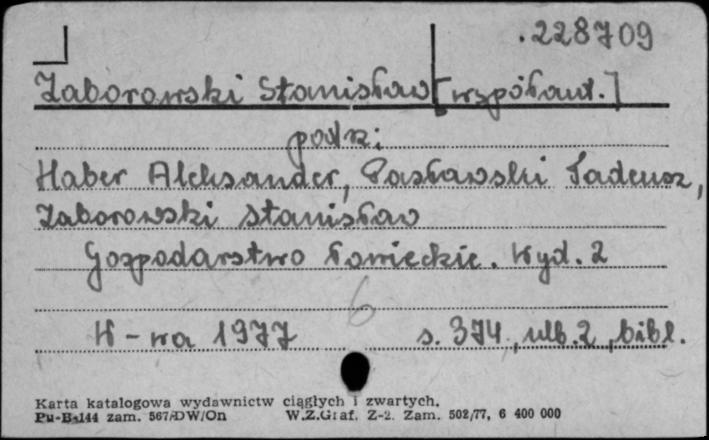 .228709
Zaborowski Stanisław [współaut.]
podz:
Haber Aleksander, Pasławski Tadeusz,
Zaborowski Stanisław
Gospodarstwo łowieckie. Wyd. 2
6
W-wa 1977 s. 374, ulb. 2, bibl.
Karta katalogowa wydawnictw ciągłych i zwartych.
Pu-B-144 zam. 567/DW/On W.Z.Graf. Z-2. Zam. 502/77, 6 400 000